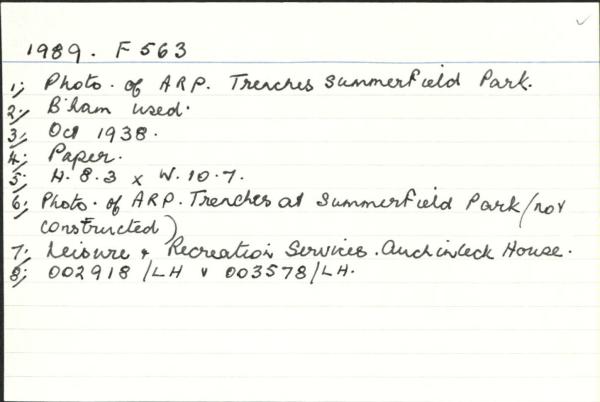 1989. F 563
1; Photo. of ARP. Trenches Summerfield Park.
2; B'ham used.
3; Oct 1938.
4; Paper.
5; H. 8.3 x W. 10.7.
6; Photo. of ARP. Trenches at Summerfield Park (not
constructed)
7; Leisure & Recreation Services. Auchinleck House.
8; 002918/LH & 003578/LH.